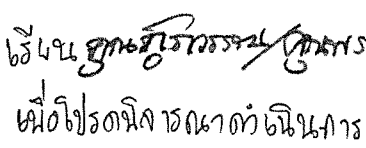 เรียน คุณจุไรวรรณ/คุณพร
เพื่อโปรดพิจารณาดำเนินการ